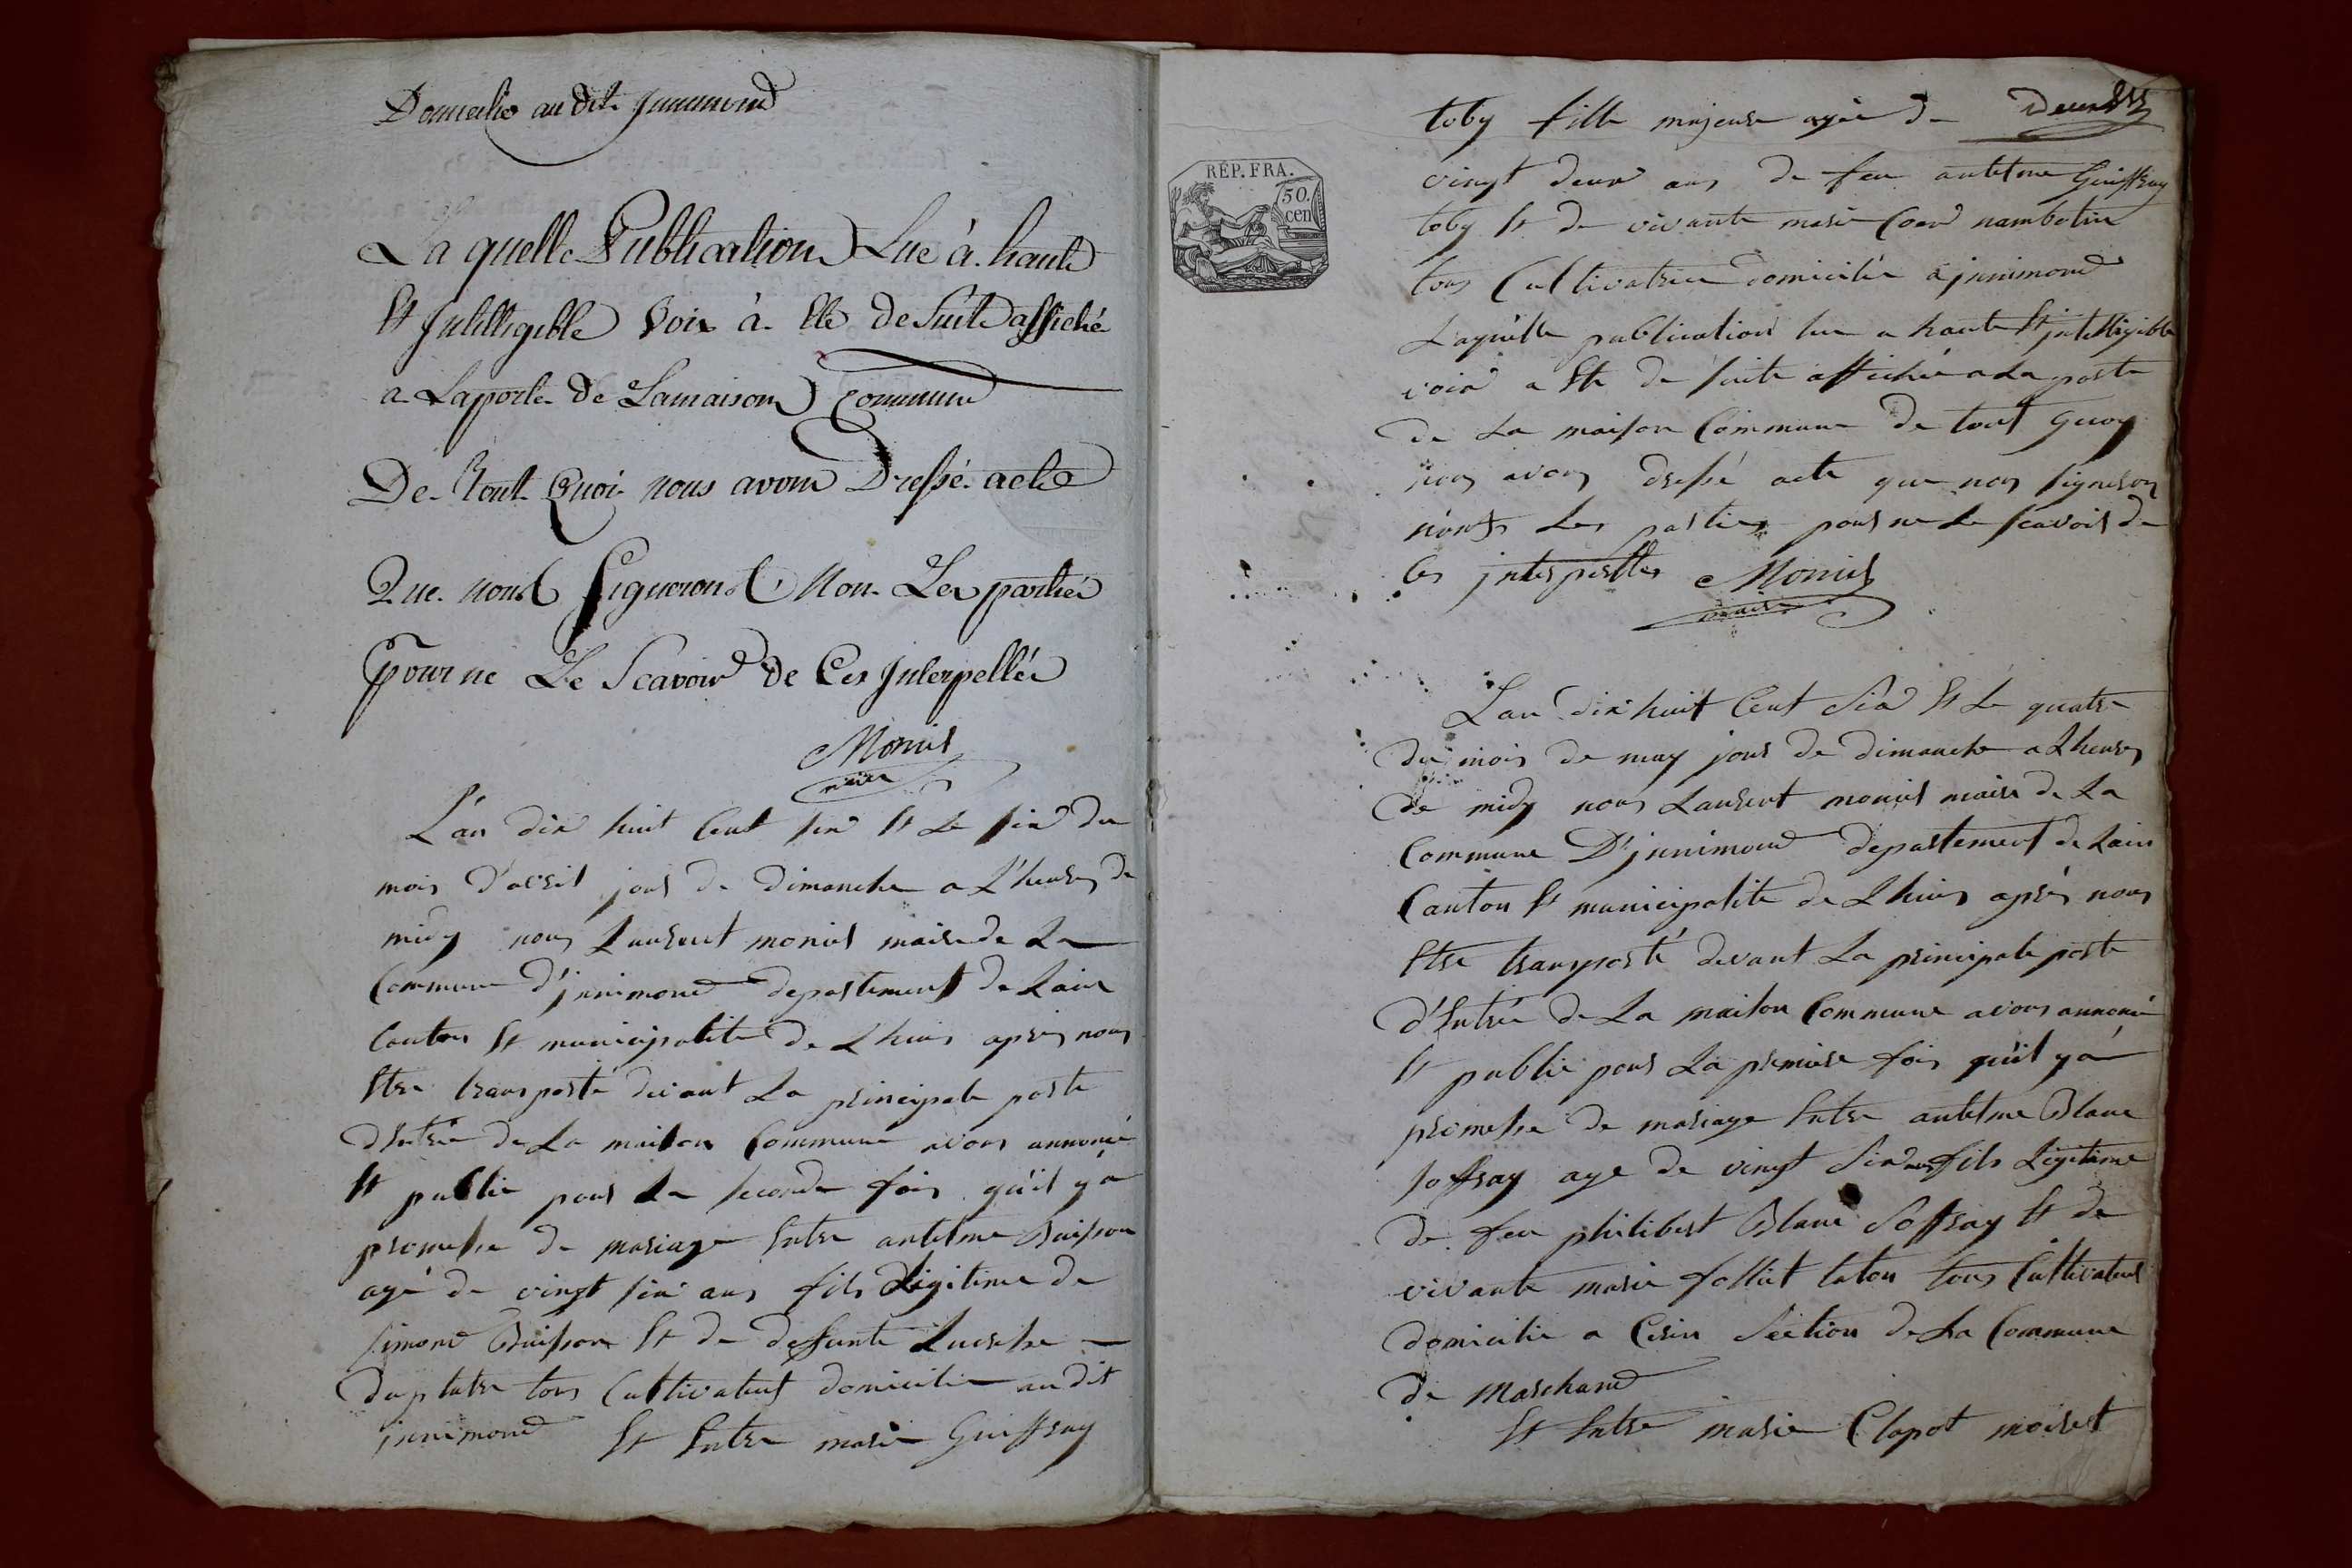 Domicilié au dit Innimond
La quelle Publication Lue à haute
Et Intelligible Voix à Eté de Suite affiché
a La porte de Lamaison Commune
De Tout Quoi nous avons Dressé acte
Que nous Signerons Non Les parties
Pour ne Le Scavoir de Ces Interpellés
Monier
maire
L'an dix huit Cent six Et Le six du
mois d'avril jour de dimanche a L'heure de
midy nous Laurent monier maire de La
Commune d'jnnimond departement de Lain
Canton Et municipalite de Lhuis apres nous
Etre transporté devant La principale porte
dEntrée de La maison Commune avons annoncé
Et publié pour La seconde fois qu'il y a
promesse de mariage Entre antelme Buisson
agé de vingt six ans fils Légitime de
simond Buisson Et de deffunte Lucresse
duplatre tous Cultivateur domicilié au dit
jnnimond Et Entre marie Guiffray
RÉP. FRA.
50.
cen
toby fille majeure agée de deux
vingt deux ans de feu antelme Guiffray
toby Et de vivante marie Coer nambotin
tous Cultivatrice domicilié a jnnimond
Laquelle publication lue a haute Et jntelligible
voix a Ete de suite affichée a La porte
de La maison Commune de tout quoy
nous avons dressé acte que nous signerons
non Les parties pour ne Le scavoir de
Ces jnterpellées Monier
maire
Lan dix huit Cent Six Et Le quatre
du mois de may jour de dimanche a Lheure
de midy nous Laurent monier maire de La
Commune D'jnnimond departement de Lain
Canton Et municipalite de Lhuis après nous
Etre transporté devant La principale porte
d'Entrée de La maison Commune avons annoncé
Et publié pour La premiere fois qu'il y a
promesse de mariage Entre antelme Blanc
soffray agé de vingt Six ans fils Légitime
de feu philibert Blanc Soffray Et de
vivante marie folliet taton tous Cultivateur
domicilié a Cerin Section de La Commune
de Marchand
Et Entre marie Clapot moiret